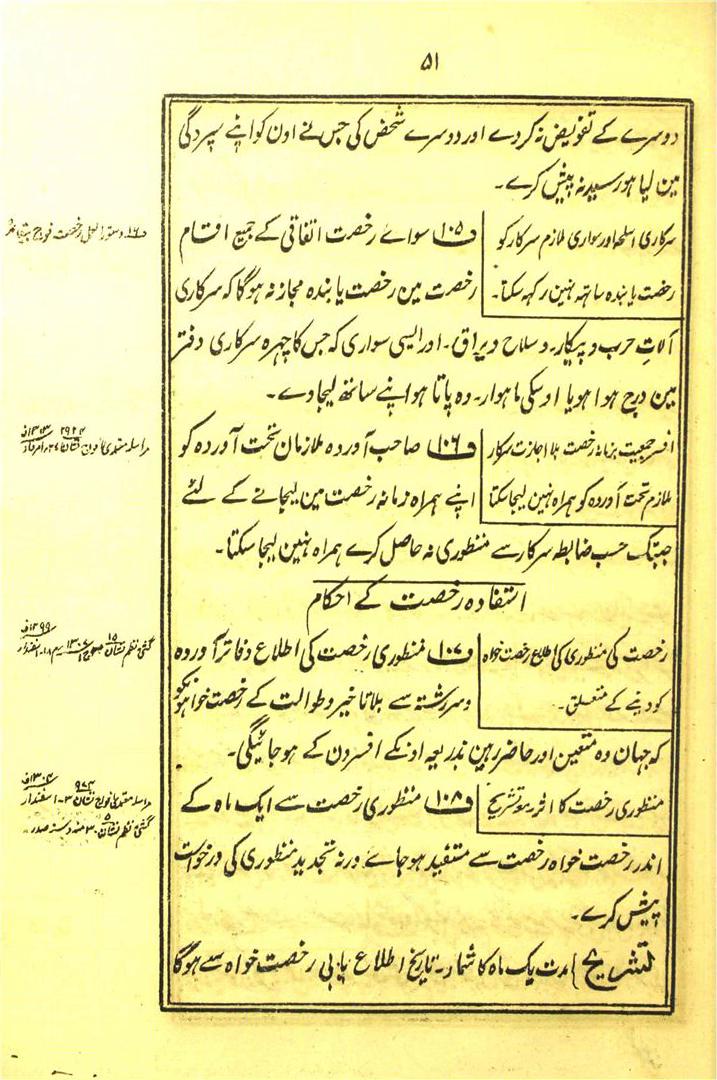 ۵۱
دوسرے کے تفویض نہ کردے اور دوسرے شخص کی جس نے اون کو اپنے سپردگی
مین لیا ہو رسید نہ پیش کرے۔
سرکاری اسلحہ اور سواری ملازم سرکار کو
رخصت یابندہ ساتھ نہین رکہہ سکتا۔
ف۱۰۵ سواے رخصت اتفاقی کے جمیع اقسام
رخصت مین رخصت یابندہ مجاز نہ ہوگا کہ سرکاری
آلاتِ حرب و پیکار۔ و سلاح و یراق۔ اور ایسی سواری کہ جس کا چہرہ سرکاری دفتر
مین درج ہوا ہو یا اوسکی ماہوار۔ وہ پاتا ہو اپنے ساتھ لیجاوے۔
افسر جمعیت بزمانہ رخصت بلا اجازت سرکار
ملازم تحت آوردہ کو ہمراہ نہین لیجا سکتا
ف۱۰۶ صاحب آوردہ ملازمان تحت آوردہ کو
اپنے ہمراہ زمانہ رخصت مین لیجانے کے لئے
جبتک حسب ضابطہ سرکار سے منظوری نہ حاصل کرے ہمراہ نہین لیجا سکتا۔
استفادہ رخصت کے احکام
رخصت کی منظوری کی اطلاع رخصت خواہ
کو دینے کے متعلق۔
ف۱۰۷ منظوری رخصت کی اطلاع دفاتر آوردہ
و سررشتہ سے بلا تاخیر و طوالت کے رخصت خواہونکو
کہ جہان وہ متعین اور حاضر رہین بذریعہ اونکے افسرون کے ہو جائیگی۔
منظوری رخصت کا اثر مع تشریح
ف۱۰۸ منظوری رخصت سے ایک ماہ کے
اندر رخصت خواہ رخصت سے مستفید ہو جاے ورنہ تجدید منظوری کی درخواست
پیش کرے۔
تشریح} مدت یک ماہ کا شمار۔ تاریخ اطلاع یابی رخصت خواہ سے ہوگا
ف۱۶۔ دستور العمل رخصت فوج
مراسلہ معتمدی فوج نشان ۲۹۲۴
گشتی نظم نشان ۱۵
مراسلہ معتمدی فوج نشان ۹۷۴ ۔ ۳۔ اسفندار
گشتی نظم نشان ۵